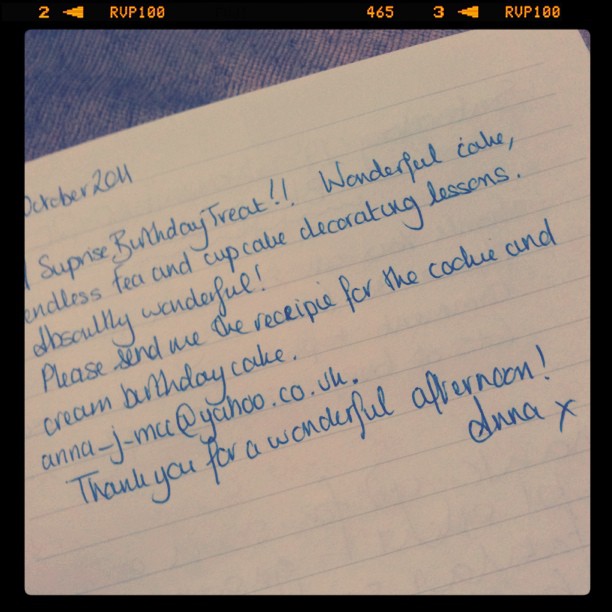 2 ◄ RVP100 465 3 ◄ RVP100
October 2011
Suprise Birthday Treat!! Wonderful cake,
endless tea and cupcake decorating lessons.
Absoultly wonderful!
Please send me the receipie for the cookie and
cream birthday cake.
anna-j-mcc@yahoo.co.uk.
Thank you for a wonderful afternoon!
Anna x